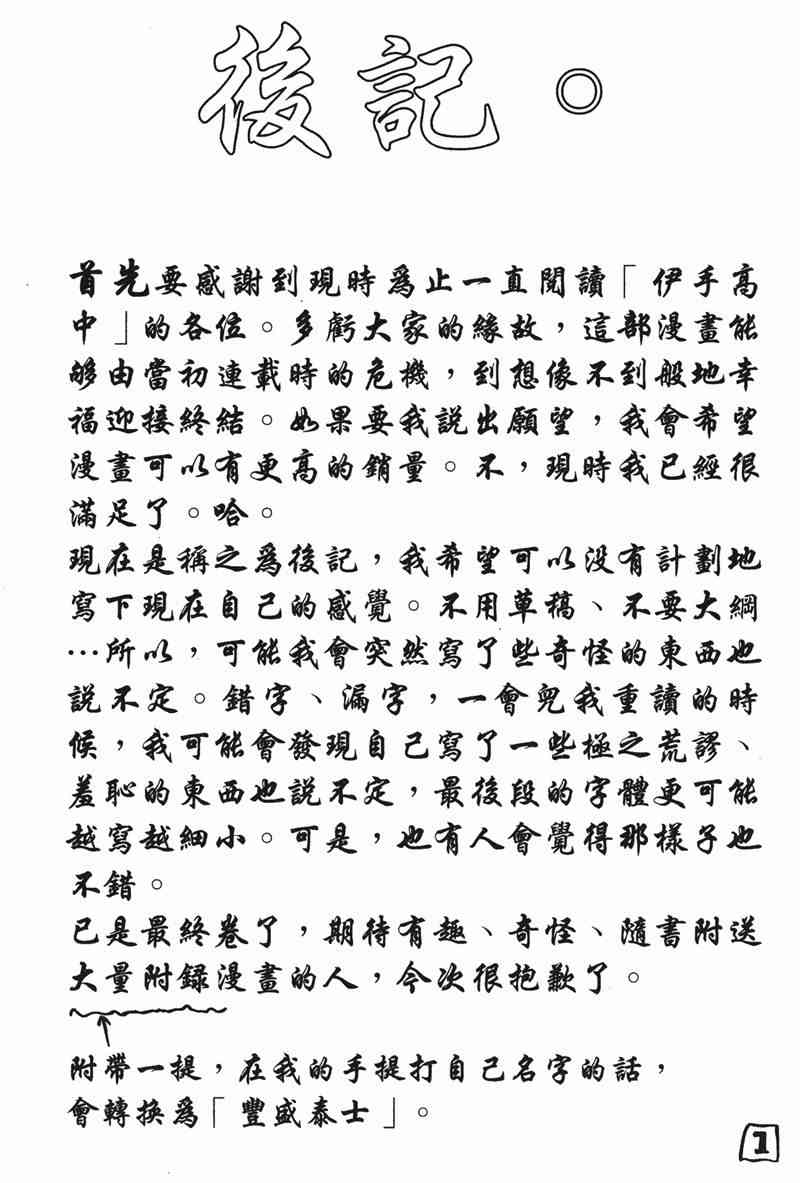 後記。
首先要感謝到現時為止一直閱讀「伊手高
中」的各位。多虧大家的緣故，這部漫畫能
够由當初連載時的危機，到想像不到般地幸
福迎接終結。如果要我説出願望，我會希望
漫畫可以有更高的銷量。不，現時我已經很
滿足了。哈。
現在是稱之為後記，我希望可以没有計劃地
寫下現在自己的感覺。不用草稿、不要大綱
…所以，可能我會突然寫了些奇怪的東西也
説不定。錯字、漏字，一會兒我重讀的時
候，我可能會發現自己寫了一些極之荒謬、
羞恥的東西也説不定，最後段的字體更可能
越寫越細小。可是，也有人會覺得那樣子也
不錯。
已是最終卷了，期待有趣、奇怪、隨書附送
大量附録漫畫的人，今次很抱歉了。
附帶一提，在我的手提打自己名字的話，
會轉換為「豐盛泰士」。
1